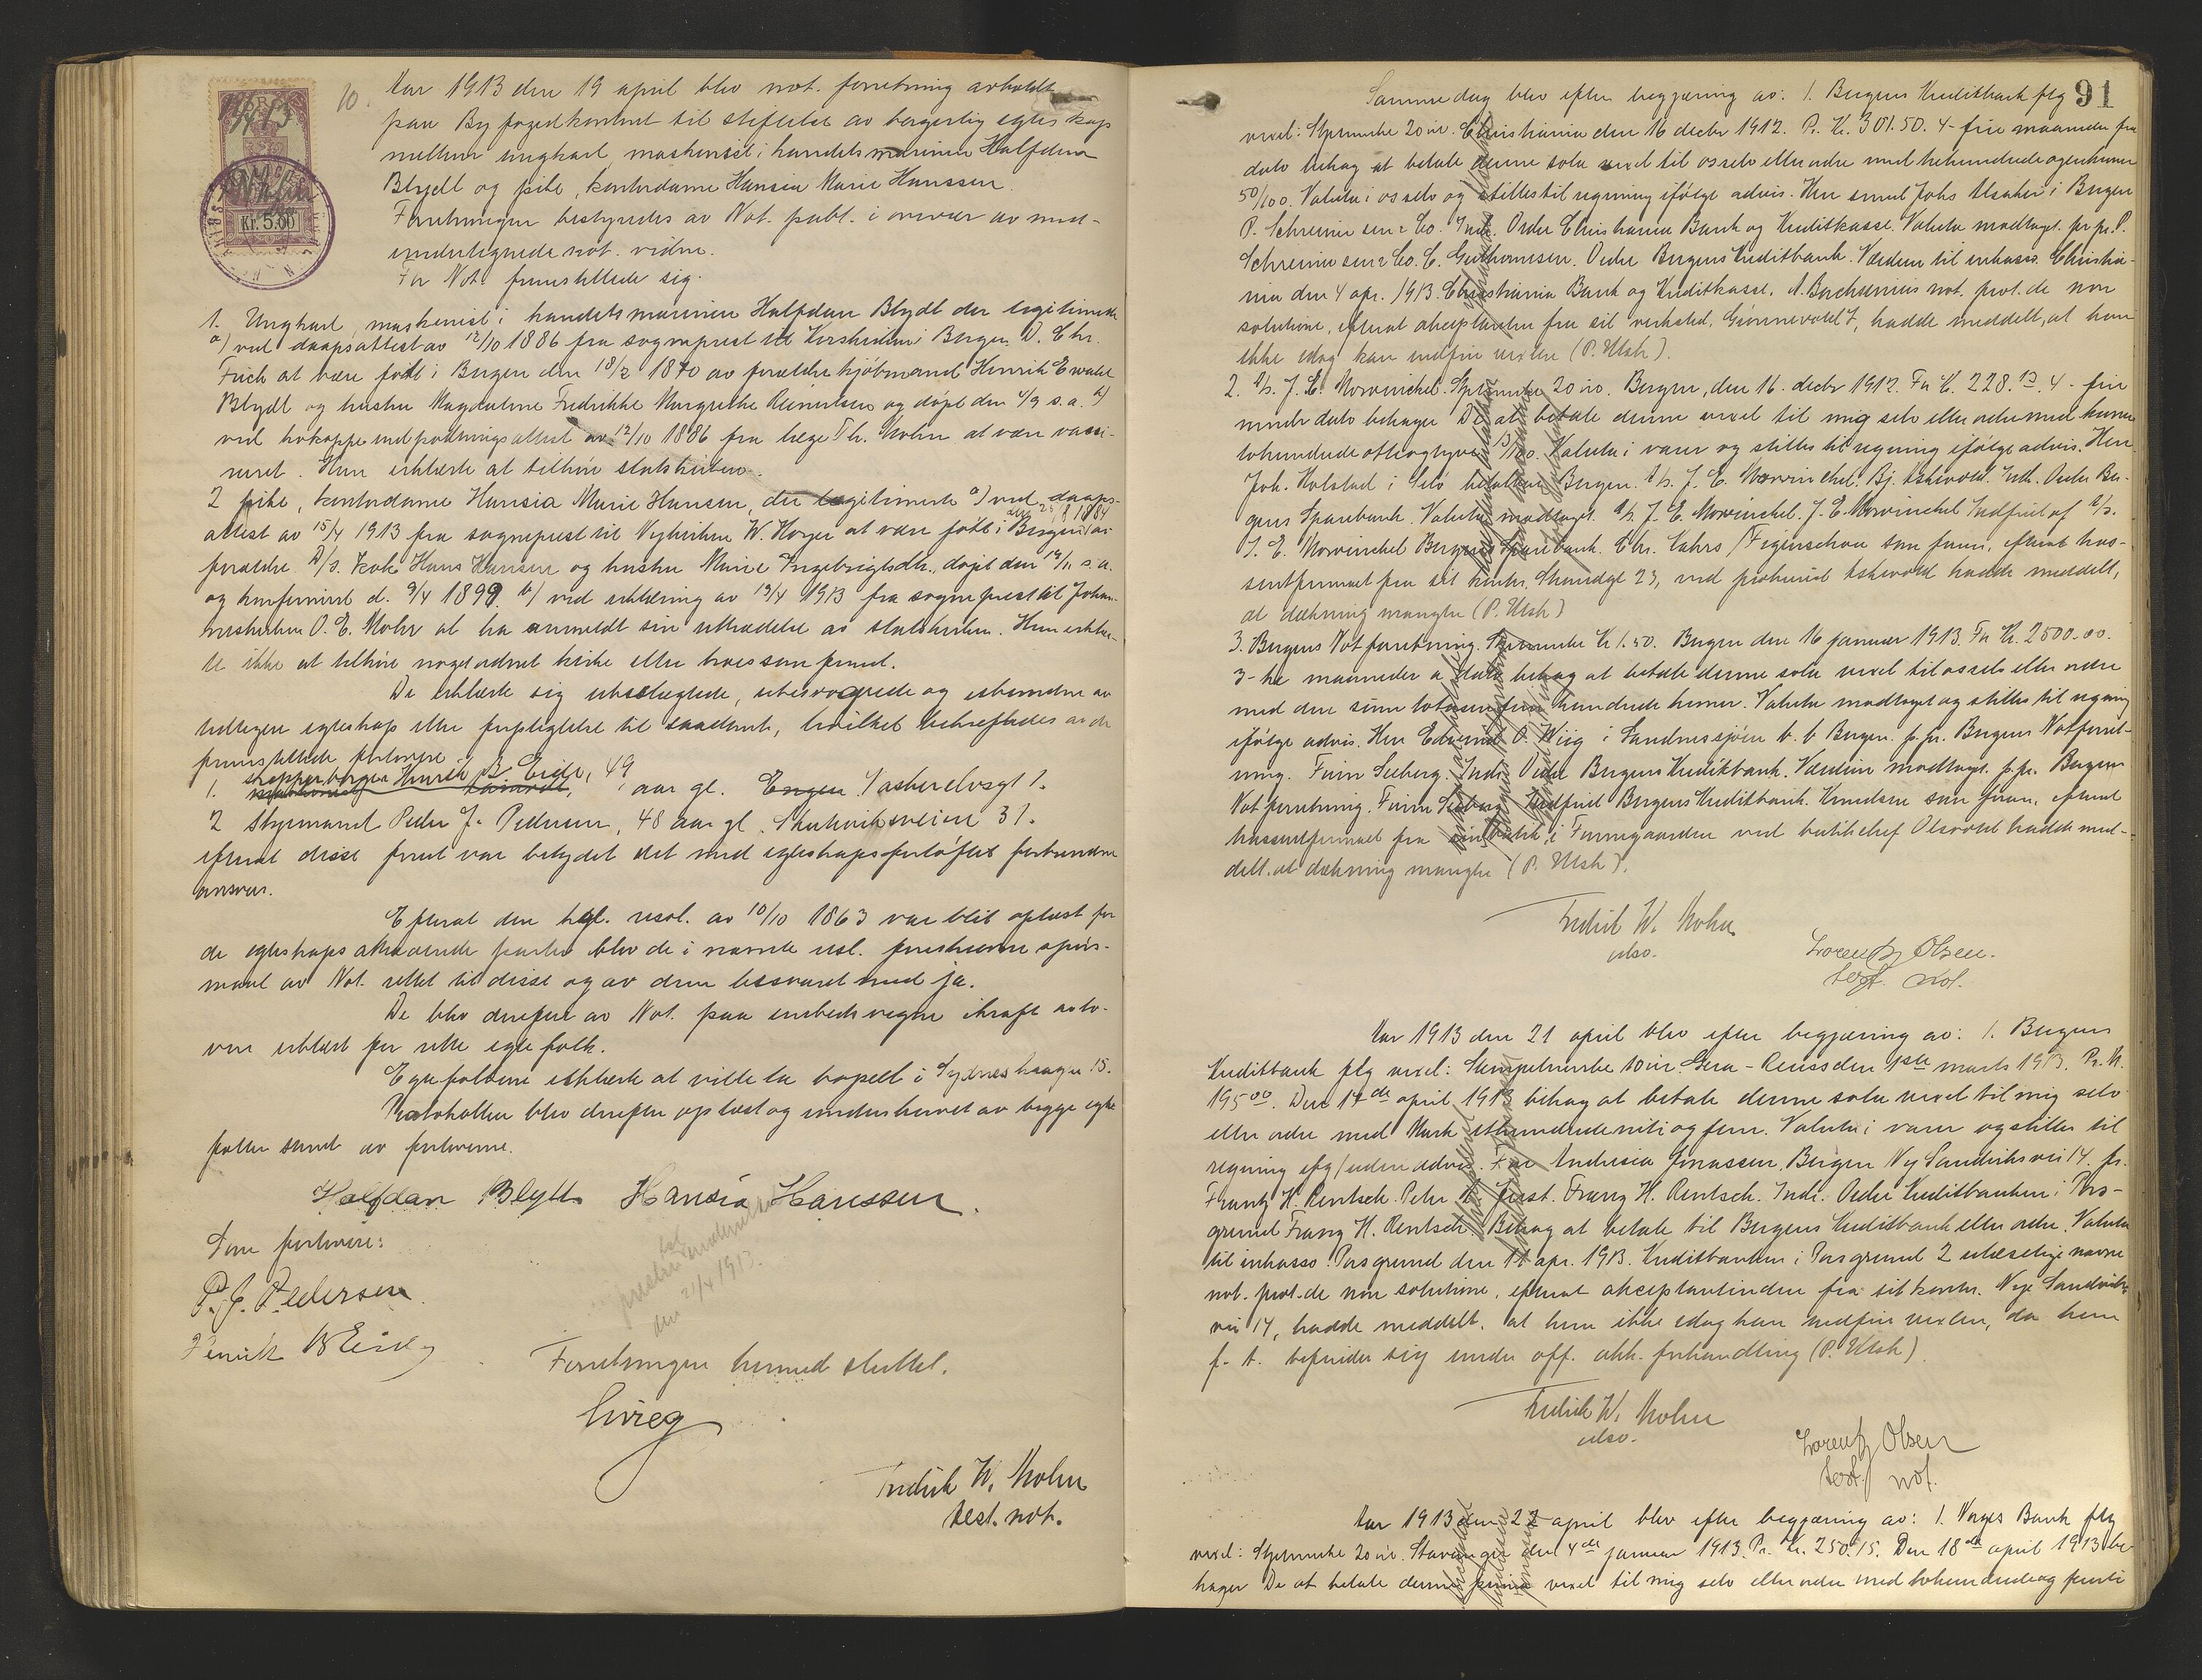 10.
Kr. 5.00
Aar 1913 den 19 april blev not. forretning avholdt
paa Byfogedkontoret til stiftelse av borgerlig egteskap
mellem ungkarl, maskinist i handelsmarinen Halfdan
Blydt og pike, kontordame Hansia Marie Hanssen.
Forretningen bestyredes av Not. publ. i overvær av med-
undertegnede not. vidne.
For Not. fremstillede sig.
1. Ungkarl, maskinist i handelsmarinen Halfdan Blydt der legitimerte
a) ved daapsattest av 12/10 1886 fra sogneprest til Korskirken i Bergen D. Chr.
at være født i Bergen den 18/2 1870 av forældre kjøbmand Henrik Ewald
Blydt og hustru Magdalene Fredrikke Margrethe og døpt den 4/9 s.a. b)
ved kokoppeindpodningsattest av 12/10 1886 fra læge Th. Mohn at være vacci-
neret. Han erklærte at tilhøre statskirken.
2 pike, kontordame Hansia Marie Hansen, der legitimerte a) ved daaps-
attest av 15/4 1913 fra sogneprest til Nykirken W. at være født i Bergen av
forældre D/s. kok Hans Hansen og hustru Marie Ingebrigtsdtr. døpt den s.a.
og konfirmert d. 9/4 1899. b) ved erklæring av 19/4 1913 fra sogneprest til Johan-
neskirken O. E. Mohr at ha anmeldt sin uttrædelse av statskirken. Hun erklær-
te ikke at tilhøre noget ordnet kirke eller trossamfund.
De erklærte sig ubeslegtede, ubesvogrede og ubundne av
tidligere egteskap eller forpligtelse til saadant, hvilket bekræftedes av de
fremstillede forlovere
1. Henrik B. Eide, 49 aar gl. 1.
2 Styrmand Peder J. Pedersen, 48 aar gl. 31.
efterat disse forut var betydet det med egteskapsforløftet forbundne
ansvar.
Efterat den kgl. resol. av 10/10 1863 var blit oplæst for
de egteskapssøkende parter blev de i nævnte resl. foreskrevne spørs-
maal av Not. rettet til disse og av dem besvaret med ja.
De blev derefter av Not. paa embeds vegne ikraft av lo-
ven erklært for rette egtefolk.
Egtefolkene erklærte at ville ta bopæl i Sydneshaugen 15.
Protokollen blev derefter oplæst og underskrevet av begge egte
fæller samt av forloverne.
Halfdan Blytt Hansia Hanssen.
Som forlovere:
P. J. Pedersen
Henrik B Eide
den 21/4 1913.
Forretningen hermed sluttet.
Fredrik W. Mohn
test. not.
91
Samme dag blev efter begjæring av: 1. Bergens Kreditbank flg
vexel: Stpmerke 20 øre. Christiania den 16 decbr 1912. Pr. Kr. 301.50. 4-fire maaneder fra
dato behag at betale denne sola vexel til os selv eller ordre med trehundrede og en kroner
50/100. Valuta i os selv og stilles til regning ifølge advis. Herr Johs i Bergen
P. Schreiner sen & Co. Indr. Ordre Christiania Bank og Kreditkasse. Valuta modtaget. pr pr. P.
Schreiner sen & Co. C. Guthormsen. Ordre Bergens Kreditbank. Værdien til inkasso. Christia-
nia den 4 apr. 1913. Christiania Bank og Kreditkasse. not. prot. de non
solutione, efterat akceptanten fra sit verksted, 7, hadde meddelt, at han
ikke idag kan indfri vexlen (P. Utsh).
2. A/s. J. E. Mowinckel. Stpmerke 20 øre. Bergen, den 16. decbr 1912. For Kr. 228.13. 4 - fire
mndr dato behager De at betale denne vexel til mig selv eller ordre med kroner
tohundredeottiogtyve 13/100. Valuta i varer og stilles til regning ifølge advis. Herr
Joh. Holstad i Selv betalbar Bergen. A/s. J. E. Mowinckel. Bj. Askevold. Indr. Ordre Ber-
gens Sparebank. Valuta modtaget. A/s. J. E. Mowinckel. J. E. Mowinckel Indfriet af A/s.
J. E. Mowinckel Bergens Sparebank. Chr. Lahrs / Figenschou som foran, efterat hos-
sentfirmaet fra sit kontor, Strandgt 23, ved prokurist Askevold hadde meddelt,
at dækning mangler (P. Utsh)
3. Bergens Notforretning. Stpmerke Kr 1.50. Bergen den 16 januar 1913. For Kr. 2500.00.
3 - tre maaneder a dato behag at betale denne sola vexel til os selv eller ordre
med den sum totusenfemhundrede kroner. Valuta modtaget og stilles til regning
ifølge advis. Herr Edvind O. Wiig i Sandnessjøen b. b Bergen. p. pr. Bergens Notforret-
ning. Finn Seeberg. Indr. Ordre Bergens Kreditbank. Værdien modtaget. p. pr. Bergens
Notforretning. Finn Seeberg Indfriet Bergens Kreditbank. Knudsen som foran, efterat
trassentfirmaet fra sin butik i Finnegaarden ved butikchef Olsvold hadde med-
delt at dækning mangler (P. Utsh).
Fredrik W. Mohn
edsv.
Lorentz Olsen.
test. not.
Aar 1913 den 21 april blev efter begjæring av: 1. Bergens
Kreditbank flg vexel: Stempelmerke 10 øre. Gera-Reuss den 1ste marts 1913. Pr. M.
195 00. Den 14de april 1913 behag at betale denne sola vexel til mig selv
eller ordre med Mark ethundredenitiogfem. Valuta i varer og stilles til
regning ifg / uden advis. Andrea Jonassen, Bergen Ny Sandviksvei 14. pr.
Frantz H. Rentsch. Petr. Franz H. Rentsch. Indr. Ordre Kreditbanken i Pors-
grund Franz H. Rentsch. Behag at betale til Bergens Kreditbank eller ordre. Valuta
til inkasso. Porsgrund den 11 apr. 1913. Kreditbanken i Porsgrund 2 ulæselige navne
not. prot. de non solutione, efterat akceptantinden fra sit kontor. Nye Sandviks-
vei 14, hadde meddelt, at hun ikke idag kan indfri vexlen, da hun
f. t. befinder sig under off. akk. forhandling (P. Utsh)
Fredrik W. Mohn
edsv.
Lorentz Olsen
test. not.
Aar 1913 den 22 april blev efter begjæring av: 1. Norges Bank flg
vexel: Stpmerke 20 øre. Stavanger den 4de januar 1913. Pr. Kr. 250.15. Den 18de april 1913 be-
hager De at betale denne prima vexel til mig selv eller ordre med tohundredeog femti